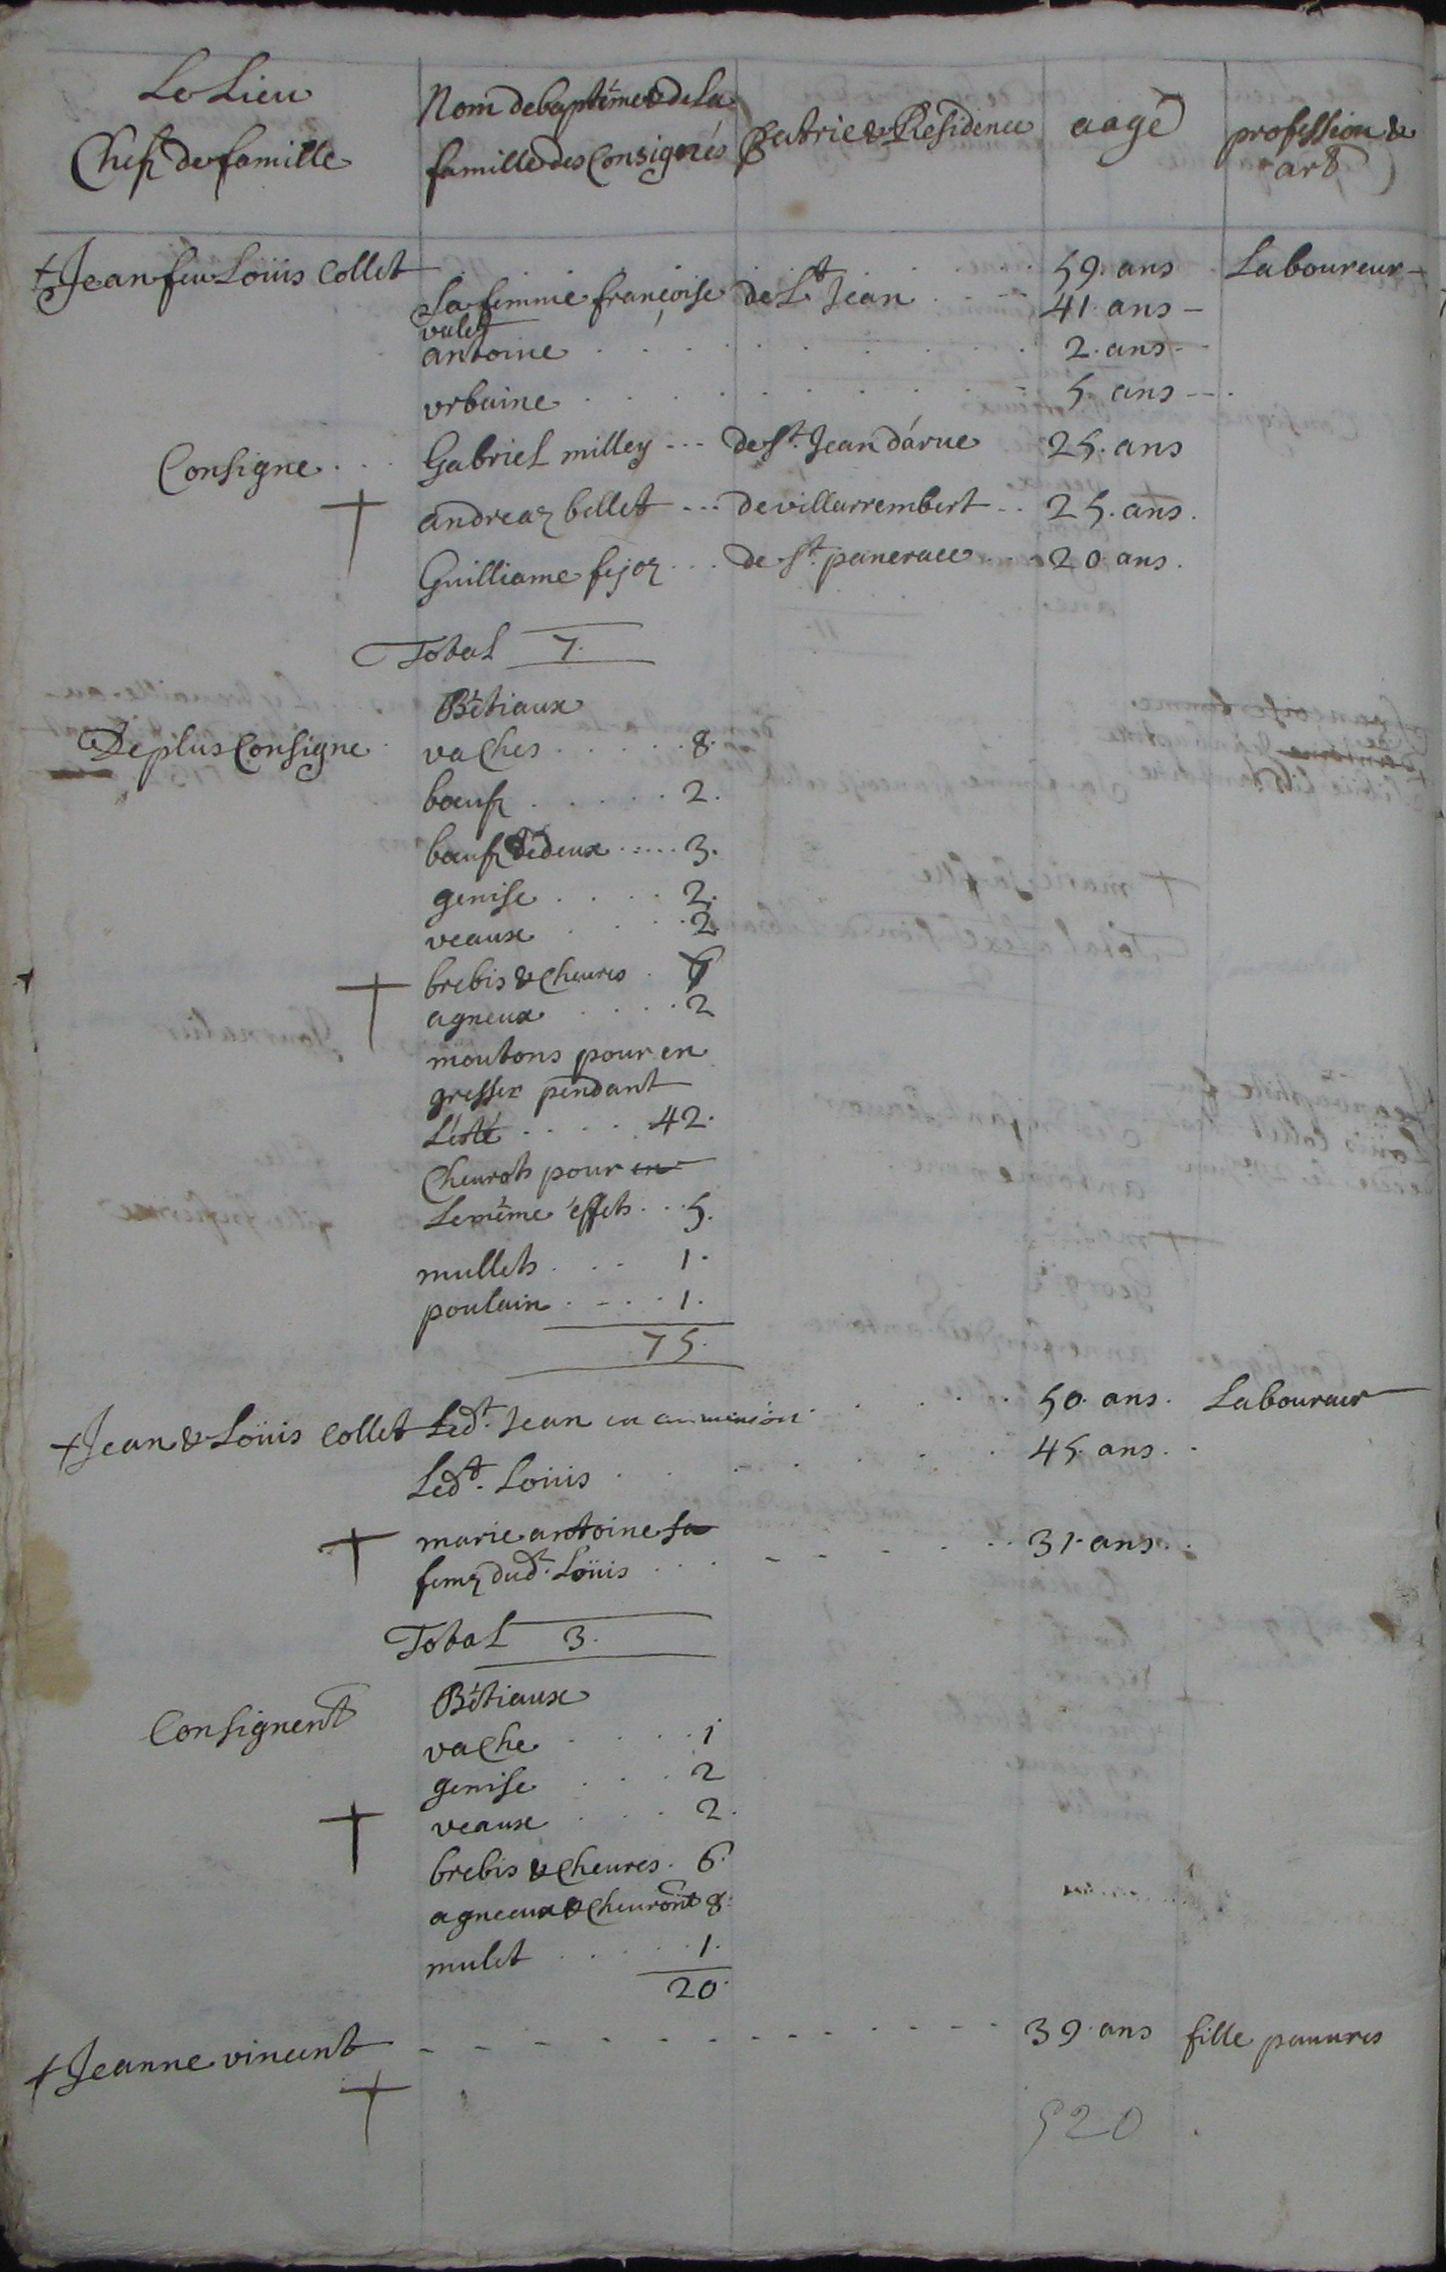 Le Lieu
Chefz de famille
Nom de baptéme & de La
famille des Consignés
Patrie & Résidence
aagé
profession &
art
+ Jean feu Loüis Collet 59. ans Laboureur
Sa femme françoise de St Jean 41. ans
valet
antoine 2. ans
urbaine 5 ans
Consigne Gabriel milley de St. Jean d'árue 25. ans
andreaz bellet de villarrembert 25. ans.
Guilliame fejoz de St. pancrace 20 ans.
Total 7.
Bétiaux
De plus Consigne vaches 8.
bœufz 2.
bœufz de deux 3.
genise 2.
veaux 2
brebis & cheures
agneux 2
moutons pour en
gresser pendant
L'été 42.
Cheurots pour
Le méme éffets 5.
mullets 1.
poulain 1.
75.
+ Jean & Loüis Collet Led.t Jean 50. ans. Laboureur
Led.t Loüis 45. ans.
marie antoine sa
femz dud.t Loüis 31. ans.
Total 3.
Consignent
Bétiaux
vache 1
genise 2
veaux 2.
brebis & cheures. 6.
agneaux & 8.
mulet 1.
20.
+ Jeanne vincent 39. ans fille pauures
520